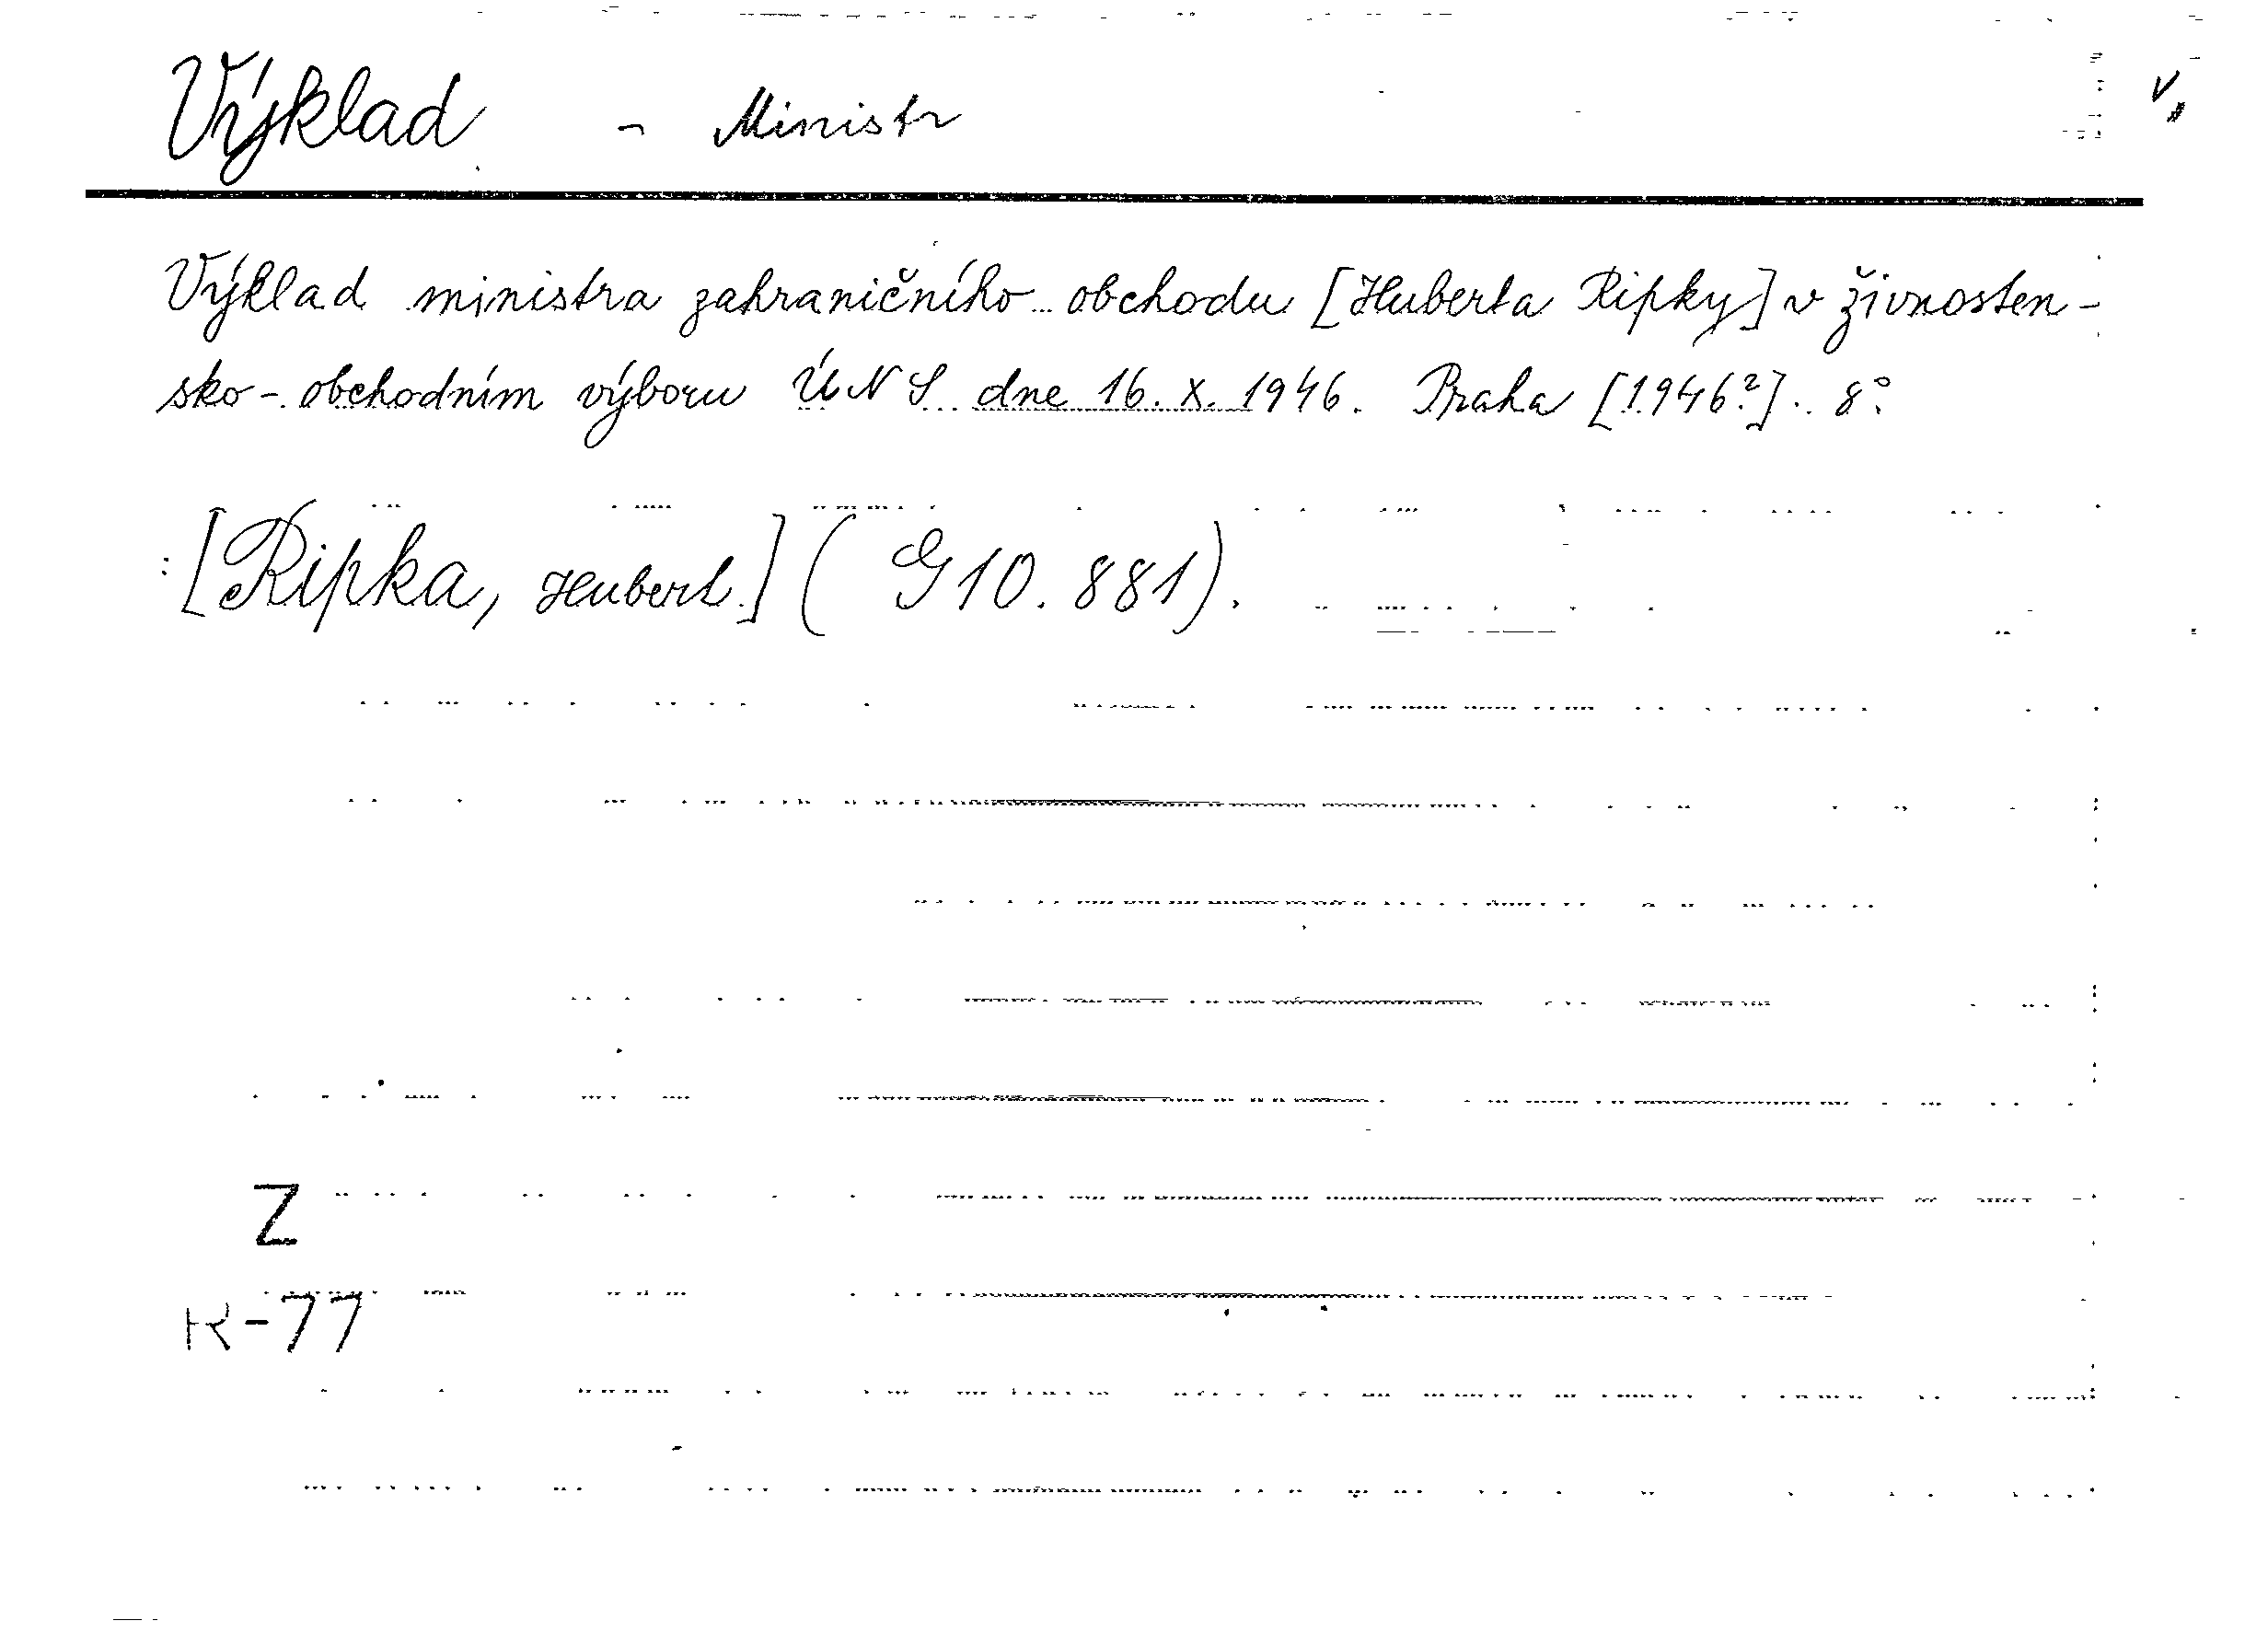 Výklad - Ministr
Výklad ministra zahraničního obchodu [Huberta Ripky] v živnosten-
sko-obchodním výboru ÚNS dne 16. X. 1946. Praha [1946?]. 8°.
:[Ripka, Hubert.] (G 10.881).
Z
K-77